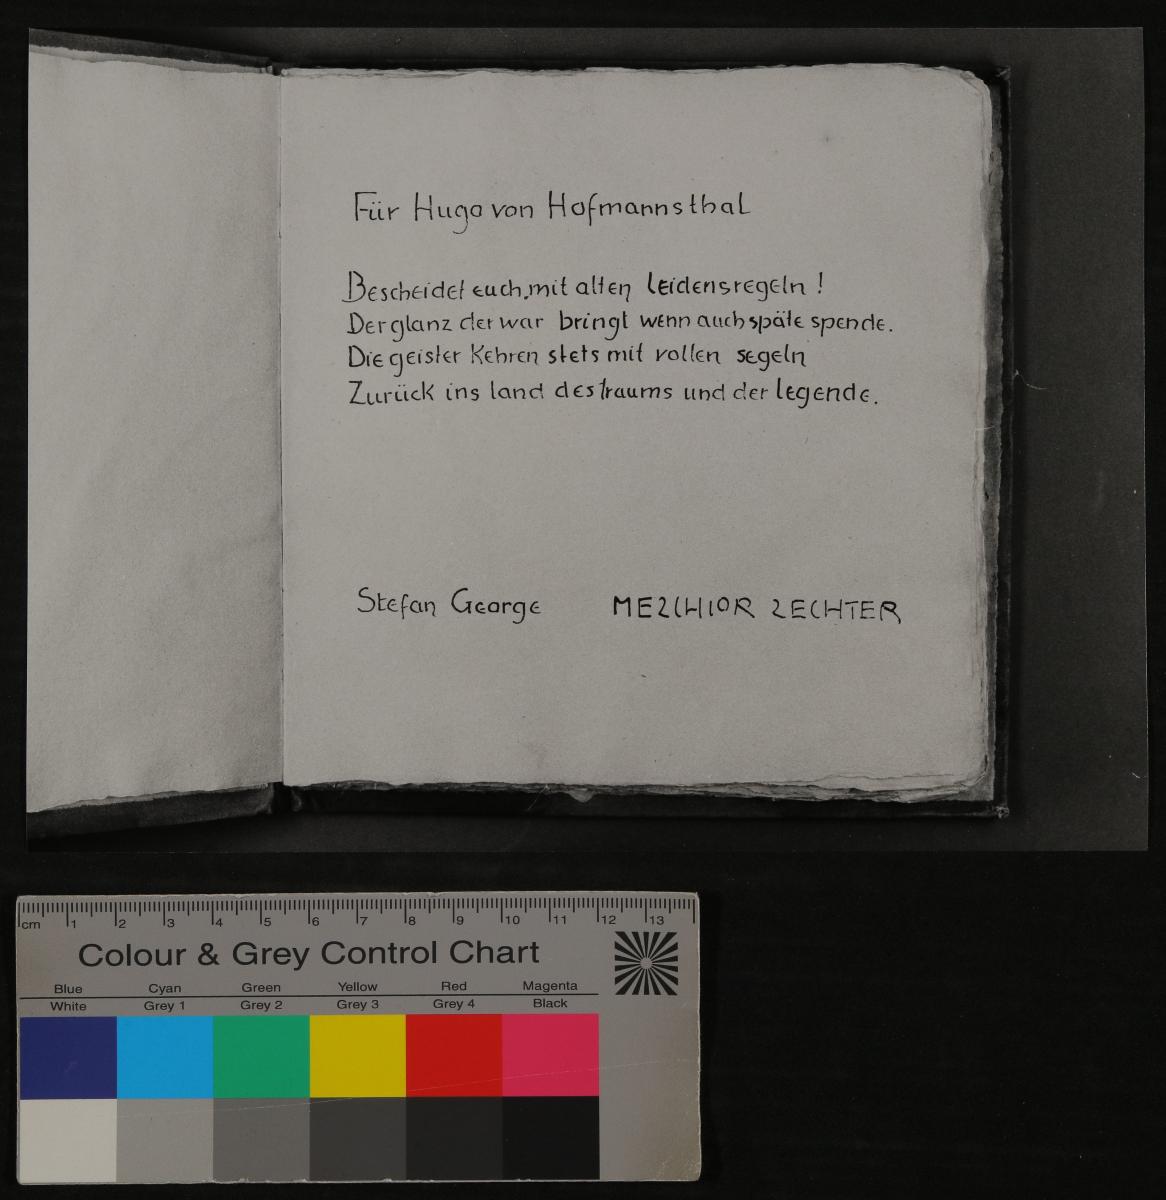 Für Hugo von Hofmannsthal
Bescheidet euch, mit alten leidensregeln!
Der glanz der war bringt wenn auch späte spende.
Die geister kehren stets mit vollen segeln
Zurück ins land des traums und der legende.
Stefan George MELCHIOR LECHTER
cm 1 2 3 4 5 6 7 8 9 10 11 12 13
Colour & Grey Control Chart
Blue Cyan Green Yellow Red Magenta
White Grey 1 Grey 2 Grey 3 Grey 4 Black